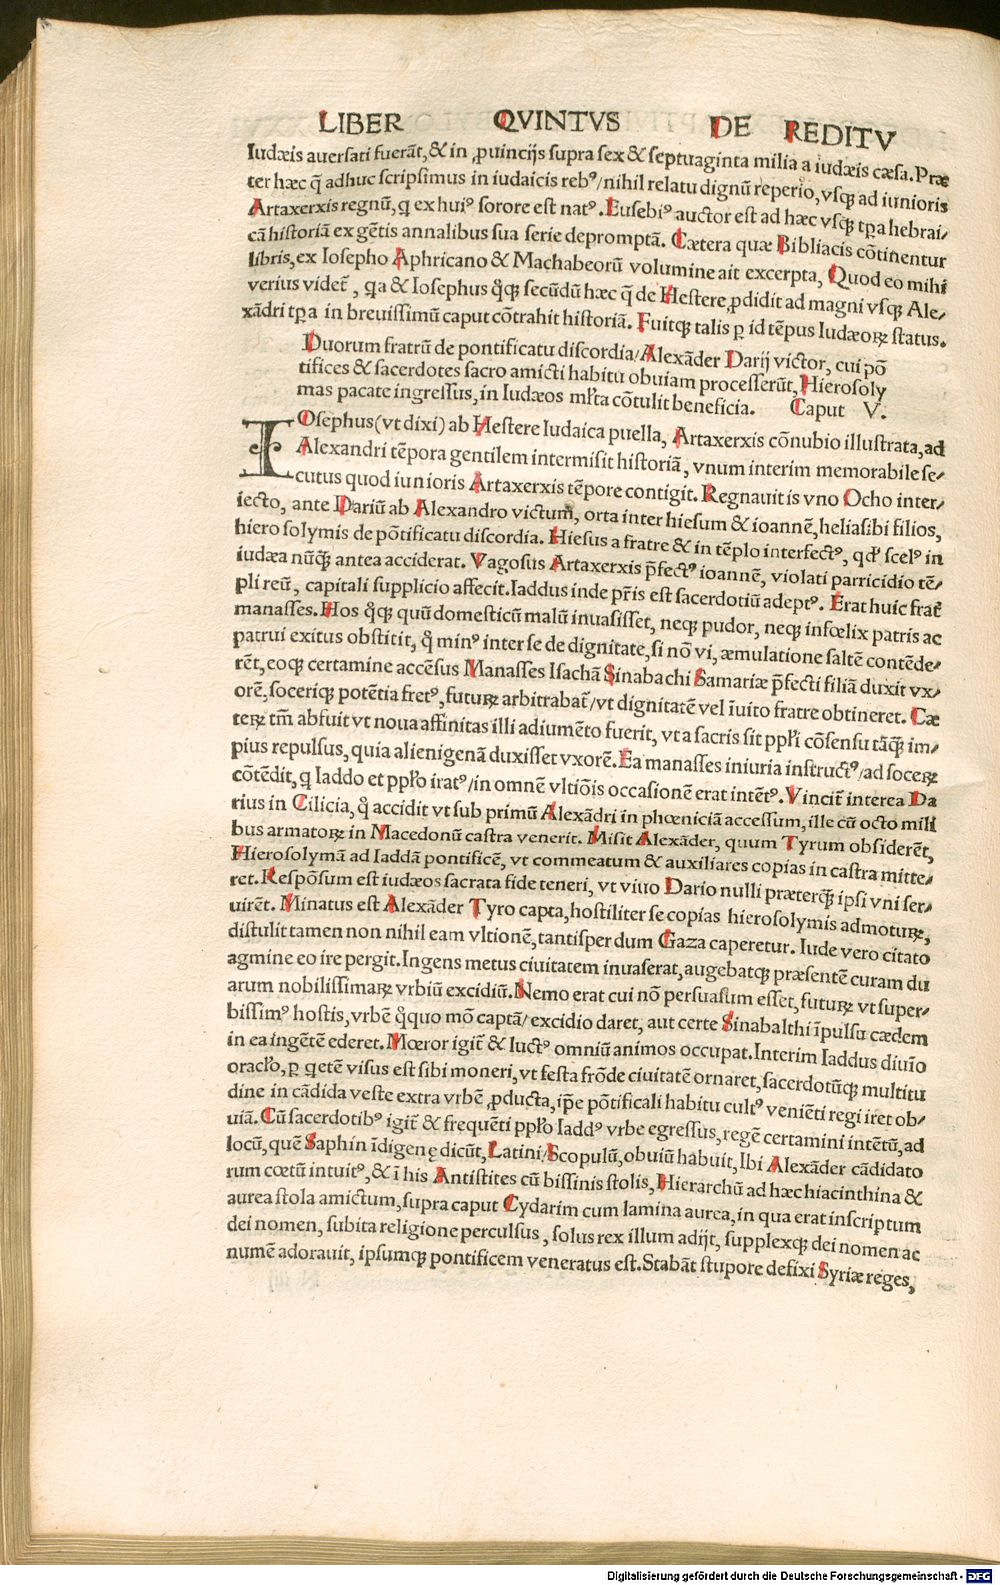 LIBER QVINTVS DE REDITV
Iudæis auersati fuerāt, & in ꝓuincijs supra sex & septuaginta milia a iudæis cæsa. Præ
ter hæc q̄ adhuc scripsimus in iudaicis rebꝰ/ nihil relatu dignū reperio, vsqꝫ ad iunioris
Artaxerxis regnū, q ex huiꝰ sorore est natꝰ. Eusebiꝰ auctor est ad hæc vsqꝫ tꝑa hebrai/
cā historiā ex gētis annalibus sua serie depromptā. Cætera quæ Bibliacis cōtinentur
libris, ex Iosepho Aphricano & Machabeorū volumine ait excerpta, Quod eo mihi
verius videt̄, qa & Iosephus q̊qꝫ secūdū hæc q̄ de Hestere ꝓdidit ad magni vsqꝫ Ale/
xādri tꝑa in breuissimū caput cōtrahit historiā. Fuitqꝫ talis ꝑ id tēpus Iudæoꝝ status.
Duorum fratrū de pontificatu discordia/ Alexāder Darij victor, cui pō
tifices & sacerdotes sacro amicti habitu obuiam processerūt, Hierosoly
mas pacate ingressus, in Iudæos ml̄ta cōtulit beneficia. Caput V.
IOsephus (vt dixi) ab Hestere Iudaica puella, Artaxerxis cōnubio illustrata, ad
Alexandri tēpora gentilem intermisit historiā, vnum interim memorabile se/
cutus quod iunioris Artaxerxis tēpore contigit. Regnauit is vno Ocho inter/
iecto, ante Dariū ab Alexandro victum, orta inter hiesum & ioannē, heliasibi filios,
hierosolymis de pōtificatu discordia. Hiesus a fratre & in tēplo interfectꝰ, qd' scelꝰ in
iudæa nūq̄ꝫ antea acciderat. Vagosus Artaxerxis p̄fectꝰ ioannē, violati parricidio tē/
pli reū, capitali supplicio affecit. Iaddus inde pr̄is est sacerdotiū adeptꝰ. Erat huic frat̄
manasses. Hos q̊qꝫ quū domesticū malū inuasisset, neqꝫ pudor, neqꝫ infœlix patris ac
patrui exitus obstitit, q̊ minꝰ inter se de dignitate, si nō vi, æmulatione saltē contēde/
rēt, eoqꝫ certamine accēsus Manasses Isachā Sinabachi Samariæ p̄fecti filiā duxit vx/
orē, soceriqꝫ potētia fretꝰ, futuꝝ arbitrabat̄/ vt dignitatē vel īuito fratre obtineret. Cæ
teꝝ tm̄ abfuit vt noua affinitas illi adiumēto fuerit, vt a sacris sit ppl̄i cōsensu tāq̄ꝫ im/
pius repulsus, quia alienigenā duxisset vxorē. Ea manasses iniuria instructꝰ/ ad soceꝝ
cōtēdit, q Iaddo et ppl̄o iratꝰ/ in omnē vltiōis occasionē erat intētꝰ. Vincit̄ interea Da
rius in Cilicia, q̊ accidit vt sub primū Alexādri in phœniciā accessum, ille cū octo mili
bus armatoꝝ in Macedonū castra venerit. Misit Alexāder, quum Tyrum obsiderēt,
Hierosolymā ad Iaddā pontificē, vt commeatum & auxiliares copias in castra mitte/
ret. Respōsum est iudæos sacrata fide teneri, vt viuo Dario nulli præterq̄ꝫ ipsi vni ser/
uirēt. Minatus est Alexāder Tyro capta, hostiliter se copias hierosolymis admotuꝝ,
distulit tamen non nihil eam vltionē, tantisper dum Gaza caperetur. Iude vero citato
agmine eo ire pergit. Ingens metus ciuitatem inuaserat, augebatqꝫ præsentē curam du
arum nobilissimaꝝ vrbiū excidiū. Nemo erat cui nō persuasum esset, futuꝝ vt super/
bissimꝰ hostis, vrbē q̊quo mō captā/ excidio daret, aut certe Sinabalthi īpulsu cædem
in ea ingētē ederet. Mœror igit̄ & luctꝰ omniū animos occupat. Interim Iaddus diuīo
oracl̄o, ꝑ qetē visus est sibi moneri, vt festa frōde ciuitatē ornaret, sacerdotūqꝫ multitu
dine in cādida veste extra vrbē ꝓducta, ip̄e pōtificali habitu cultꝰ veniēti regi iret ob/
uiā. Cū sacerdotibꝰ igit̄ & frequēti ppl̄o Iaddꝰ vrbe egressus, regē certamini intētū, ad
locū, quē Saphin īdigenę dicūt, Latini/ Scopulū, obuiū habuit, Ibi Alexāder cādidato
rum cœtū intuitꝰ, & ī his Antistites cū bissinis stolis, Hierarchū ad hæc hiacinthina &
aurea stola amictum, supra caput Cydarim cum lamina aurea, in qua erat inscriptum
dei nomen, subita religione perculsus, solus rex illum adijt, supplexqꝫ dei nomen ac
numē adorauit, ipsumqꝫ pontificem veneratus est. Stabāt stupore defixi Syriæ reges,
Digitalisierung gefördert durch die Deutsche Forschungsgemeinschaft - DFG